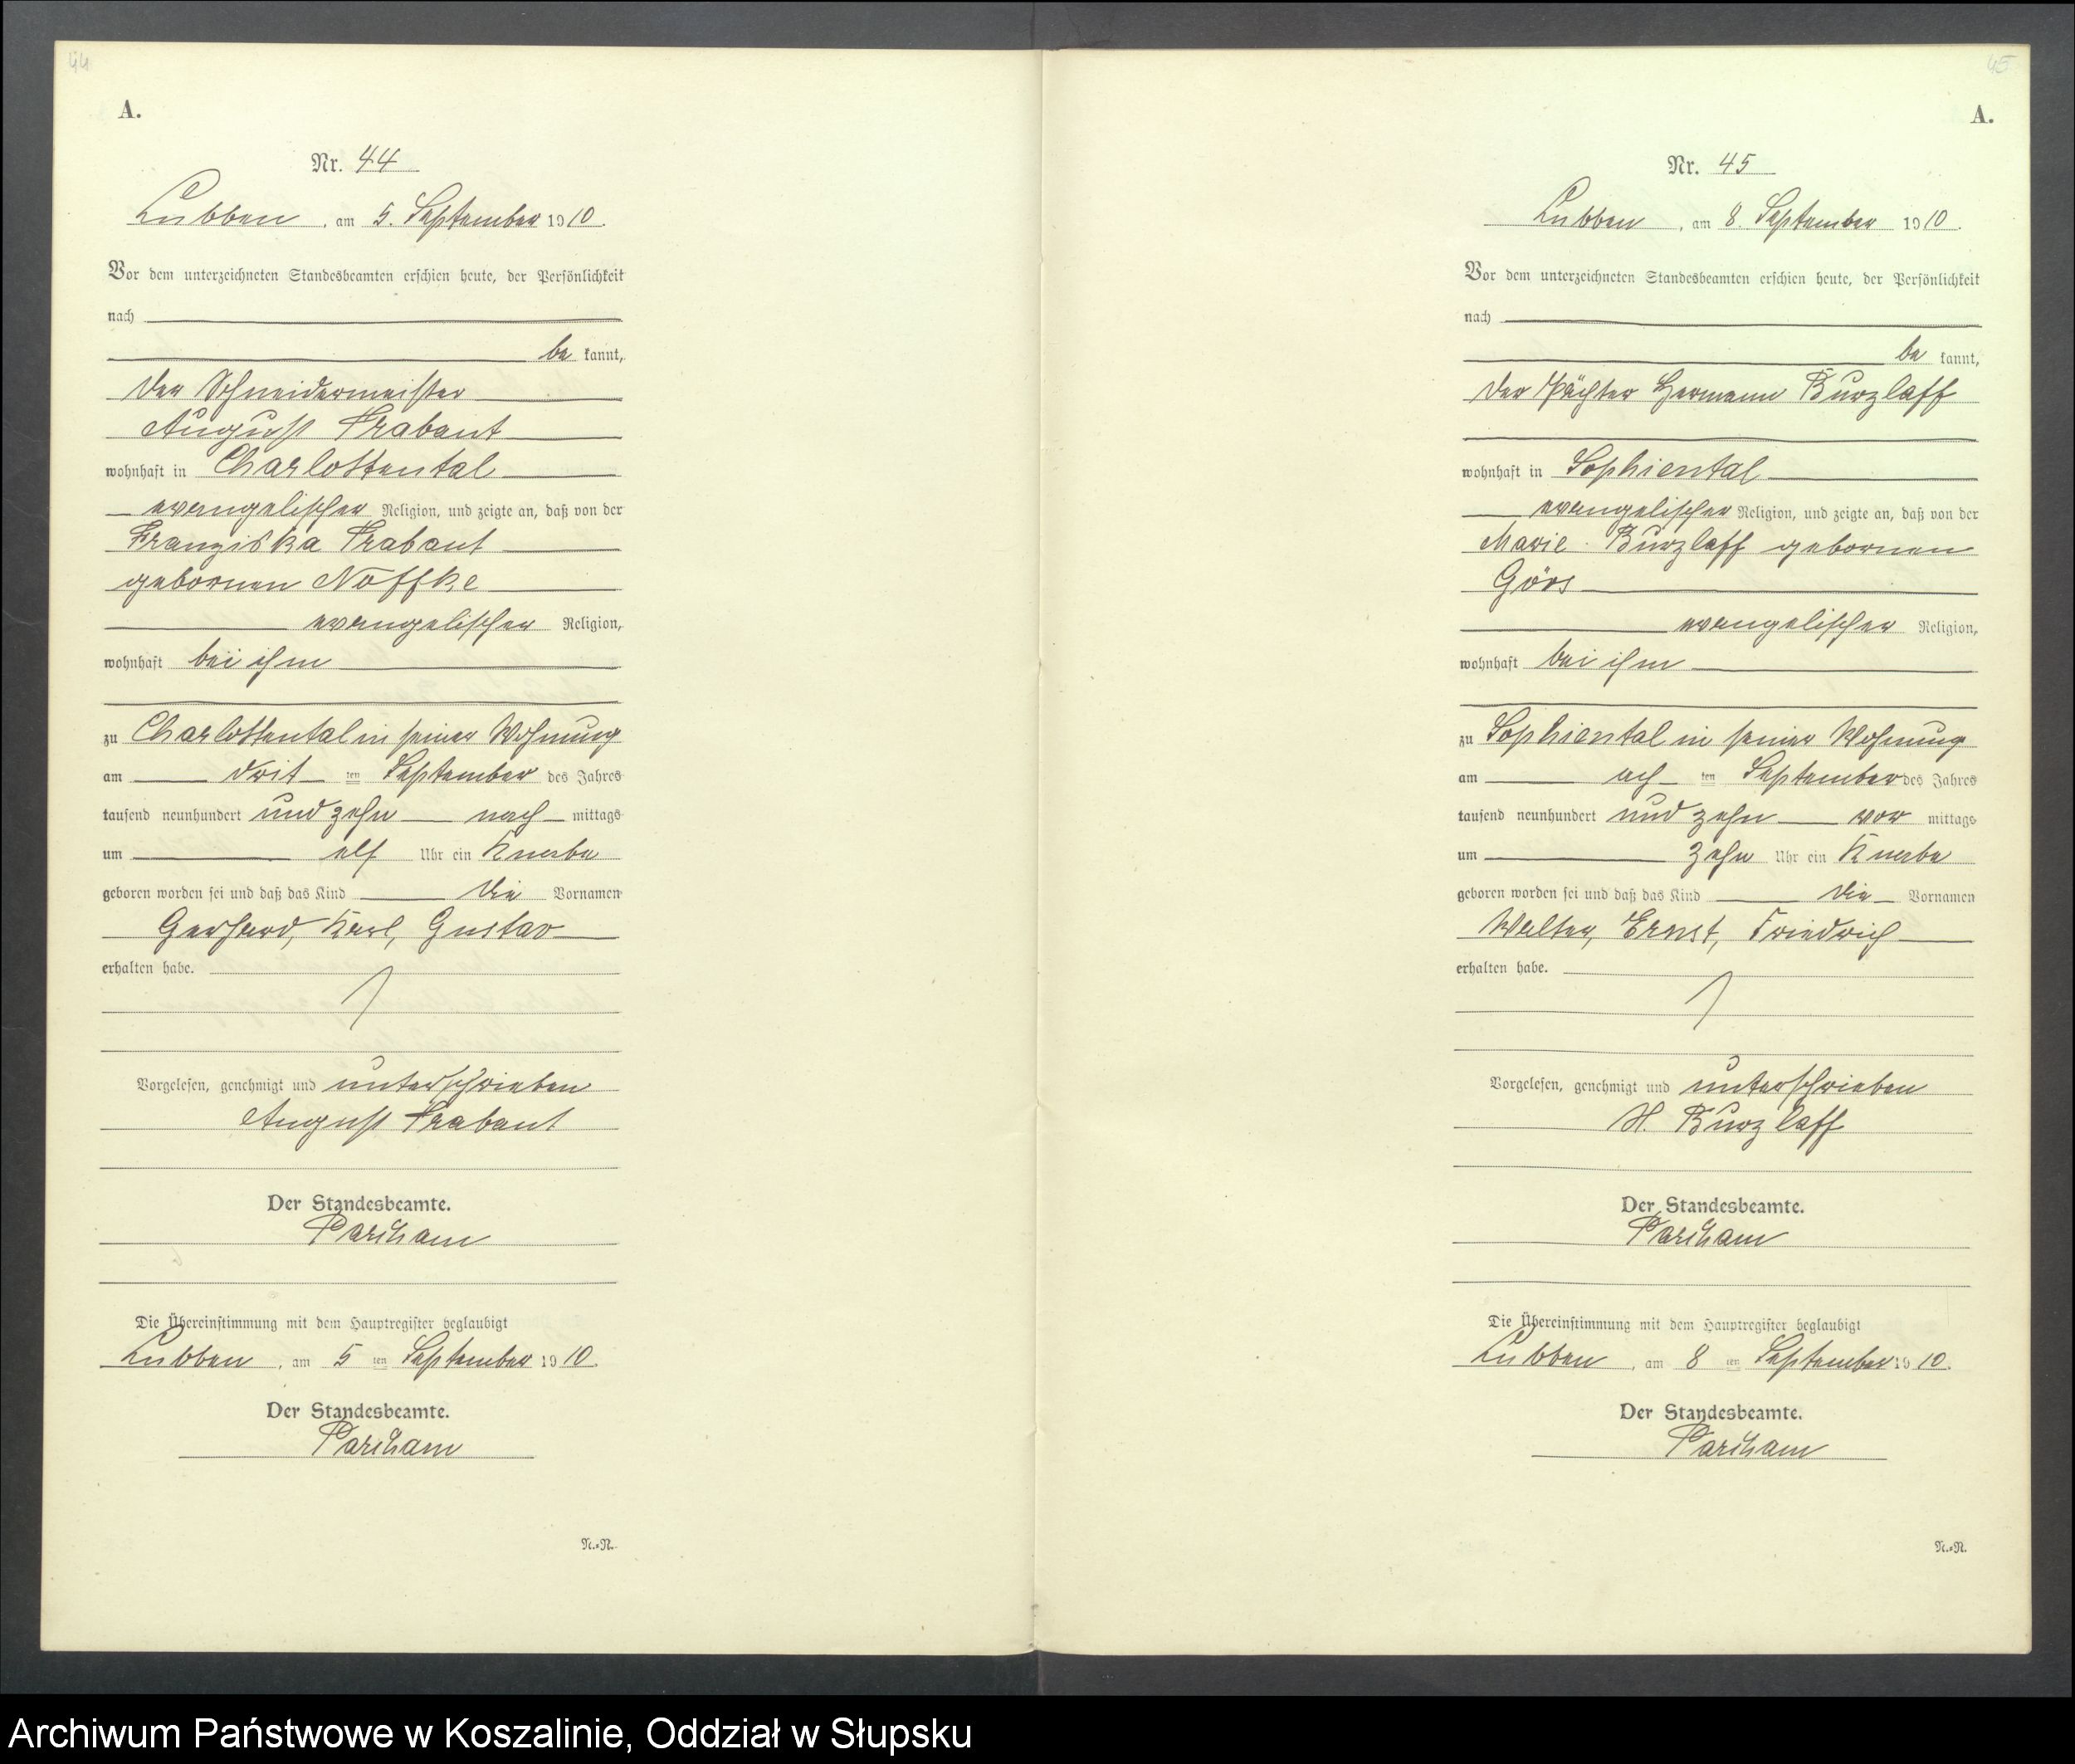 44
A.
Nr. 44
Lubben, am 5. September 1910.
Vor dem unterzeichneten Standesbeamten erschien heute, der Persönlichkeit
nach
be kannt,
der Schneidermeister
August Trabant
wohnhaft in Charlottental
evangelischer Religion, und zeigte an, daß von der
Franziska Trabant
gebornen Noffke
evangelischer Religion,
wohnhaft bei ihm
zu Charlottental in seiner Wohnung
am drit ten September des Jahres
tausend neunhundert und zehn nach mittags
um elf Uhr ein Knabe
geboren worden sei und daß das Kind die Vornamen
Gerhard, Karl, Gustav
erhalten habe.
Vorgelesen, genehmigt und unterschrieben
August Trabant
Der Standesbeamte.
Die Übereinstimmung mit dem Hauptregister beglaubigt
Lubben, am 5 ten September 1910.
Der Standesbeamte.
N.=R.
45
A.
Nr. 45
Lubben, am 8. September 1910.
Vor dem unterzeichneten Standesbeamten erschien heute, der Persönlichkeit
nach
be kannt,
der Pächter Hermann Burzlaff
wohnhaft in Sophiental
evangelischer Religion, und zeigte an, daß von der
Marie Burzlaff gebornen
Görs
evangelischer Religion,
wohnhaft bei ihm
zu Sophiental in seiner Wohnung
am ach ten September des Jahres
tausend neunhundert und zehn vor mittags
um zehn Uhr ein Knabe
geboren worden sei und daß das Kind die Vornamen
Walter, Ernst, Friedrich
erhalten habe.
Vorgelesen, genehmigt und unterschrieben
H. Burzlaff
Der Standesbeamte.
Die Übereinstimmung mit dem Hauptregister beglaubigt
Lubben, am 8 ten September 1910.
Der Standesbeamte.
N.=R.
Archiwum Państwowe w Koszalinie, Oddział w Słupsku